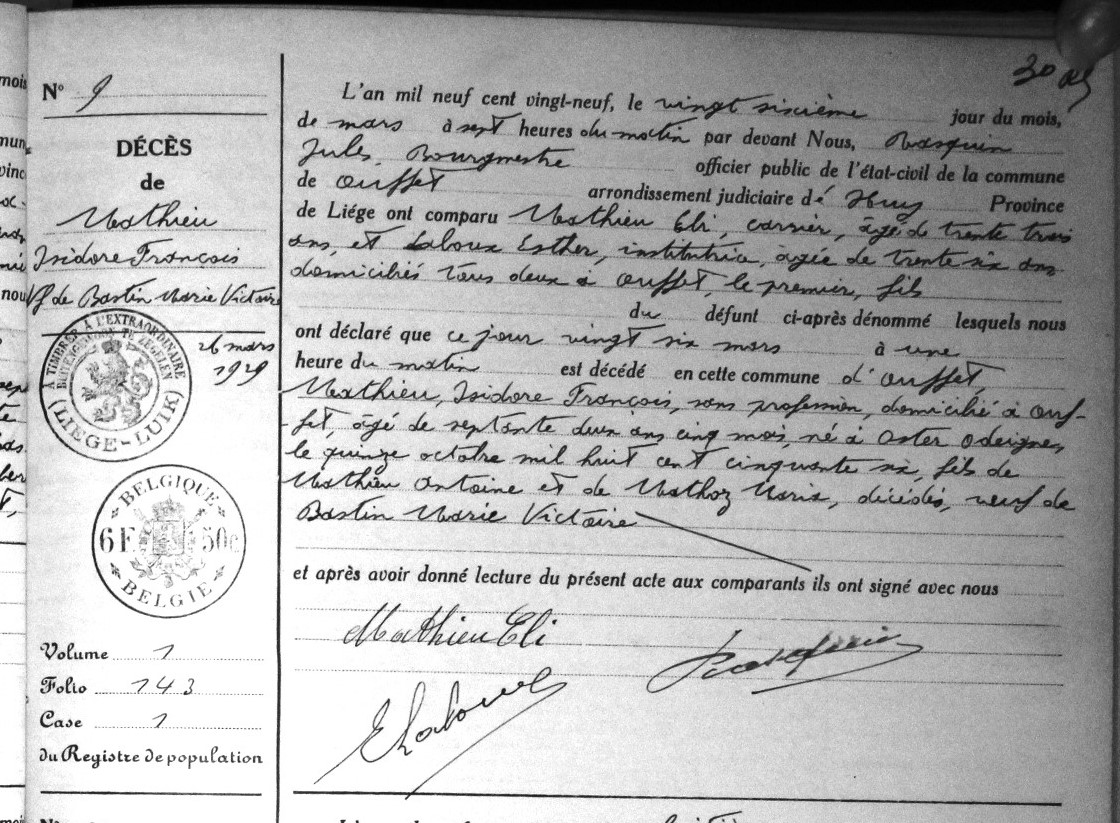 30
N° 9
DÉCÈS
de
Mathieu
Isidore François
Vf de Bastin Marie Victoire
26 mars
1929
TIMBRE À L'EXTRAORDINAIRE
BUITENGEWOON TE ZEGELEN
(LIÉGE-LUIK)
BELGIQUE
6F 50c
BELGIE
Volume 1
Folio 143
Case 1
du Registre de population
L'an mil neuf cent vingt-neuf, le vingt sixième jour du mois,
de mars à sept heures du matin par devant Nous, Rasquin
Jules, Bourgmestre officier public de l'état-civil de la commune
de Ouffet arrondissement judiciaire dé Huy Province
de Liége ont comparu Mathieu Eli, carrier, âgé de trente trois
ans, et Laboux Esther, institutrice, âgée de trente six ans
domiciliés tous deux à Ouffet, le premier, fils
du défunt ci-après dénommé lesquels nous
ont déclaré que ce jour vingt six mars à une
heure du matin est décédé en cette commune d'Ouffet,
Mathieu, Isidore François, sans profession, domicilié à Ouf-
-fet, âgé de septante deux ans cinq mois, né à Oster Odeigne,
le quinze octobre mil huit cent cinquante six, fils de
Mathieu Antoine et de Mathoz Maria, décédés, veuf de
Bastin Marie Victoire
et après avoir donné lecture du présent acte aux comparants ils ont signé avec nous
Mathieu Eli
Rasquin
E Laboux